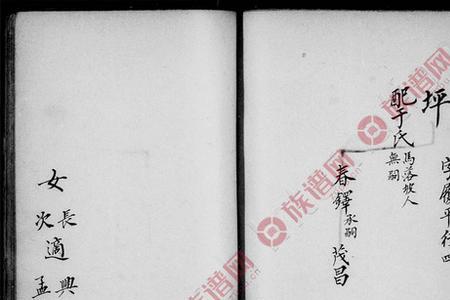 字履平行四
坪
配于氏
馬落坡人
無嗣
春鐸承嗣 茂昌
女 長 適 興
次 孟
族谱网
族谱网
族谱网